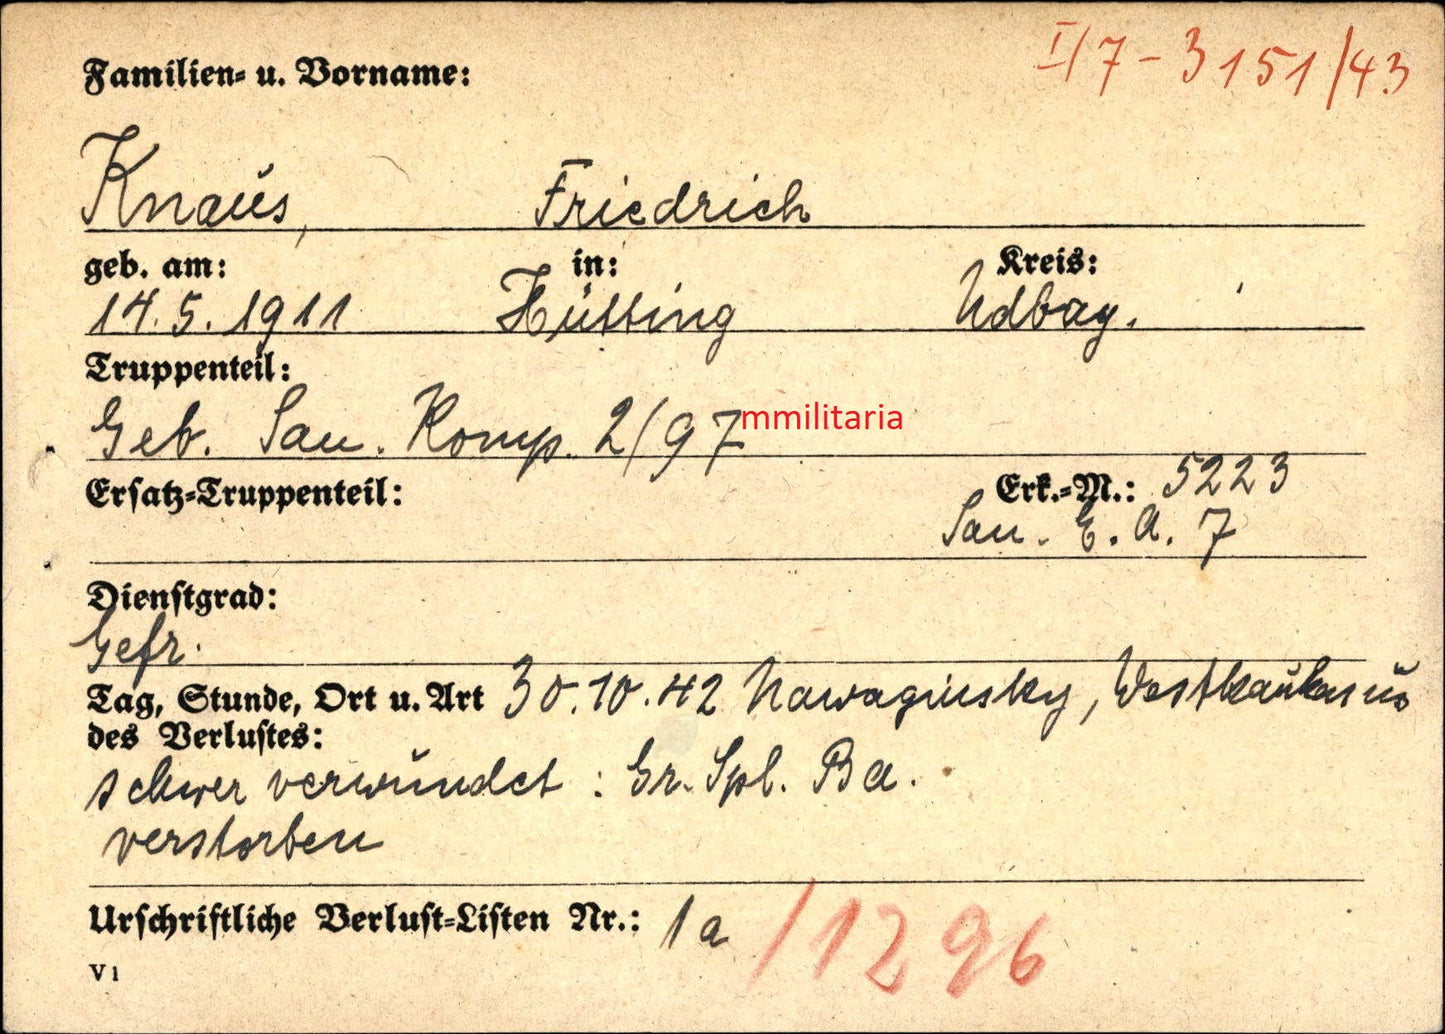 I/7-3151/43
Familien- u. Vorname:
Knaus, Friedrich
geb. am: in: Kreis:
14.5.1911 Hütting Ndbay.
Truppenteil:
Geb. San. Komp. 2/97
mmilitaria
Ersatz-Truppenteil: Erk.-M.: 5223
San. E. A. 7
Dienstgrad:
Gefr.
Tag, Stunde, Ort u. Art 30.10.42 Nawaginsky, Westkaukasus
des Verlustes:
schwer verwundet : Gr. Spl. Ba.
verstorben
Urschriftliche Verlust-Listen Nr.: 1a /1296
V1